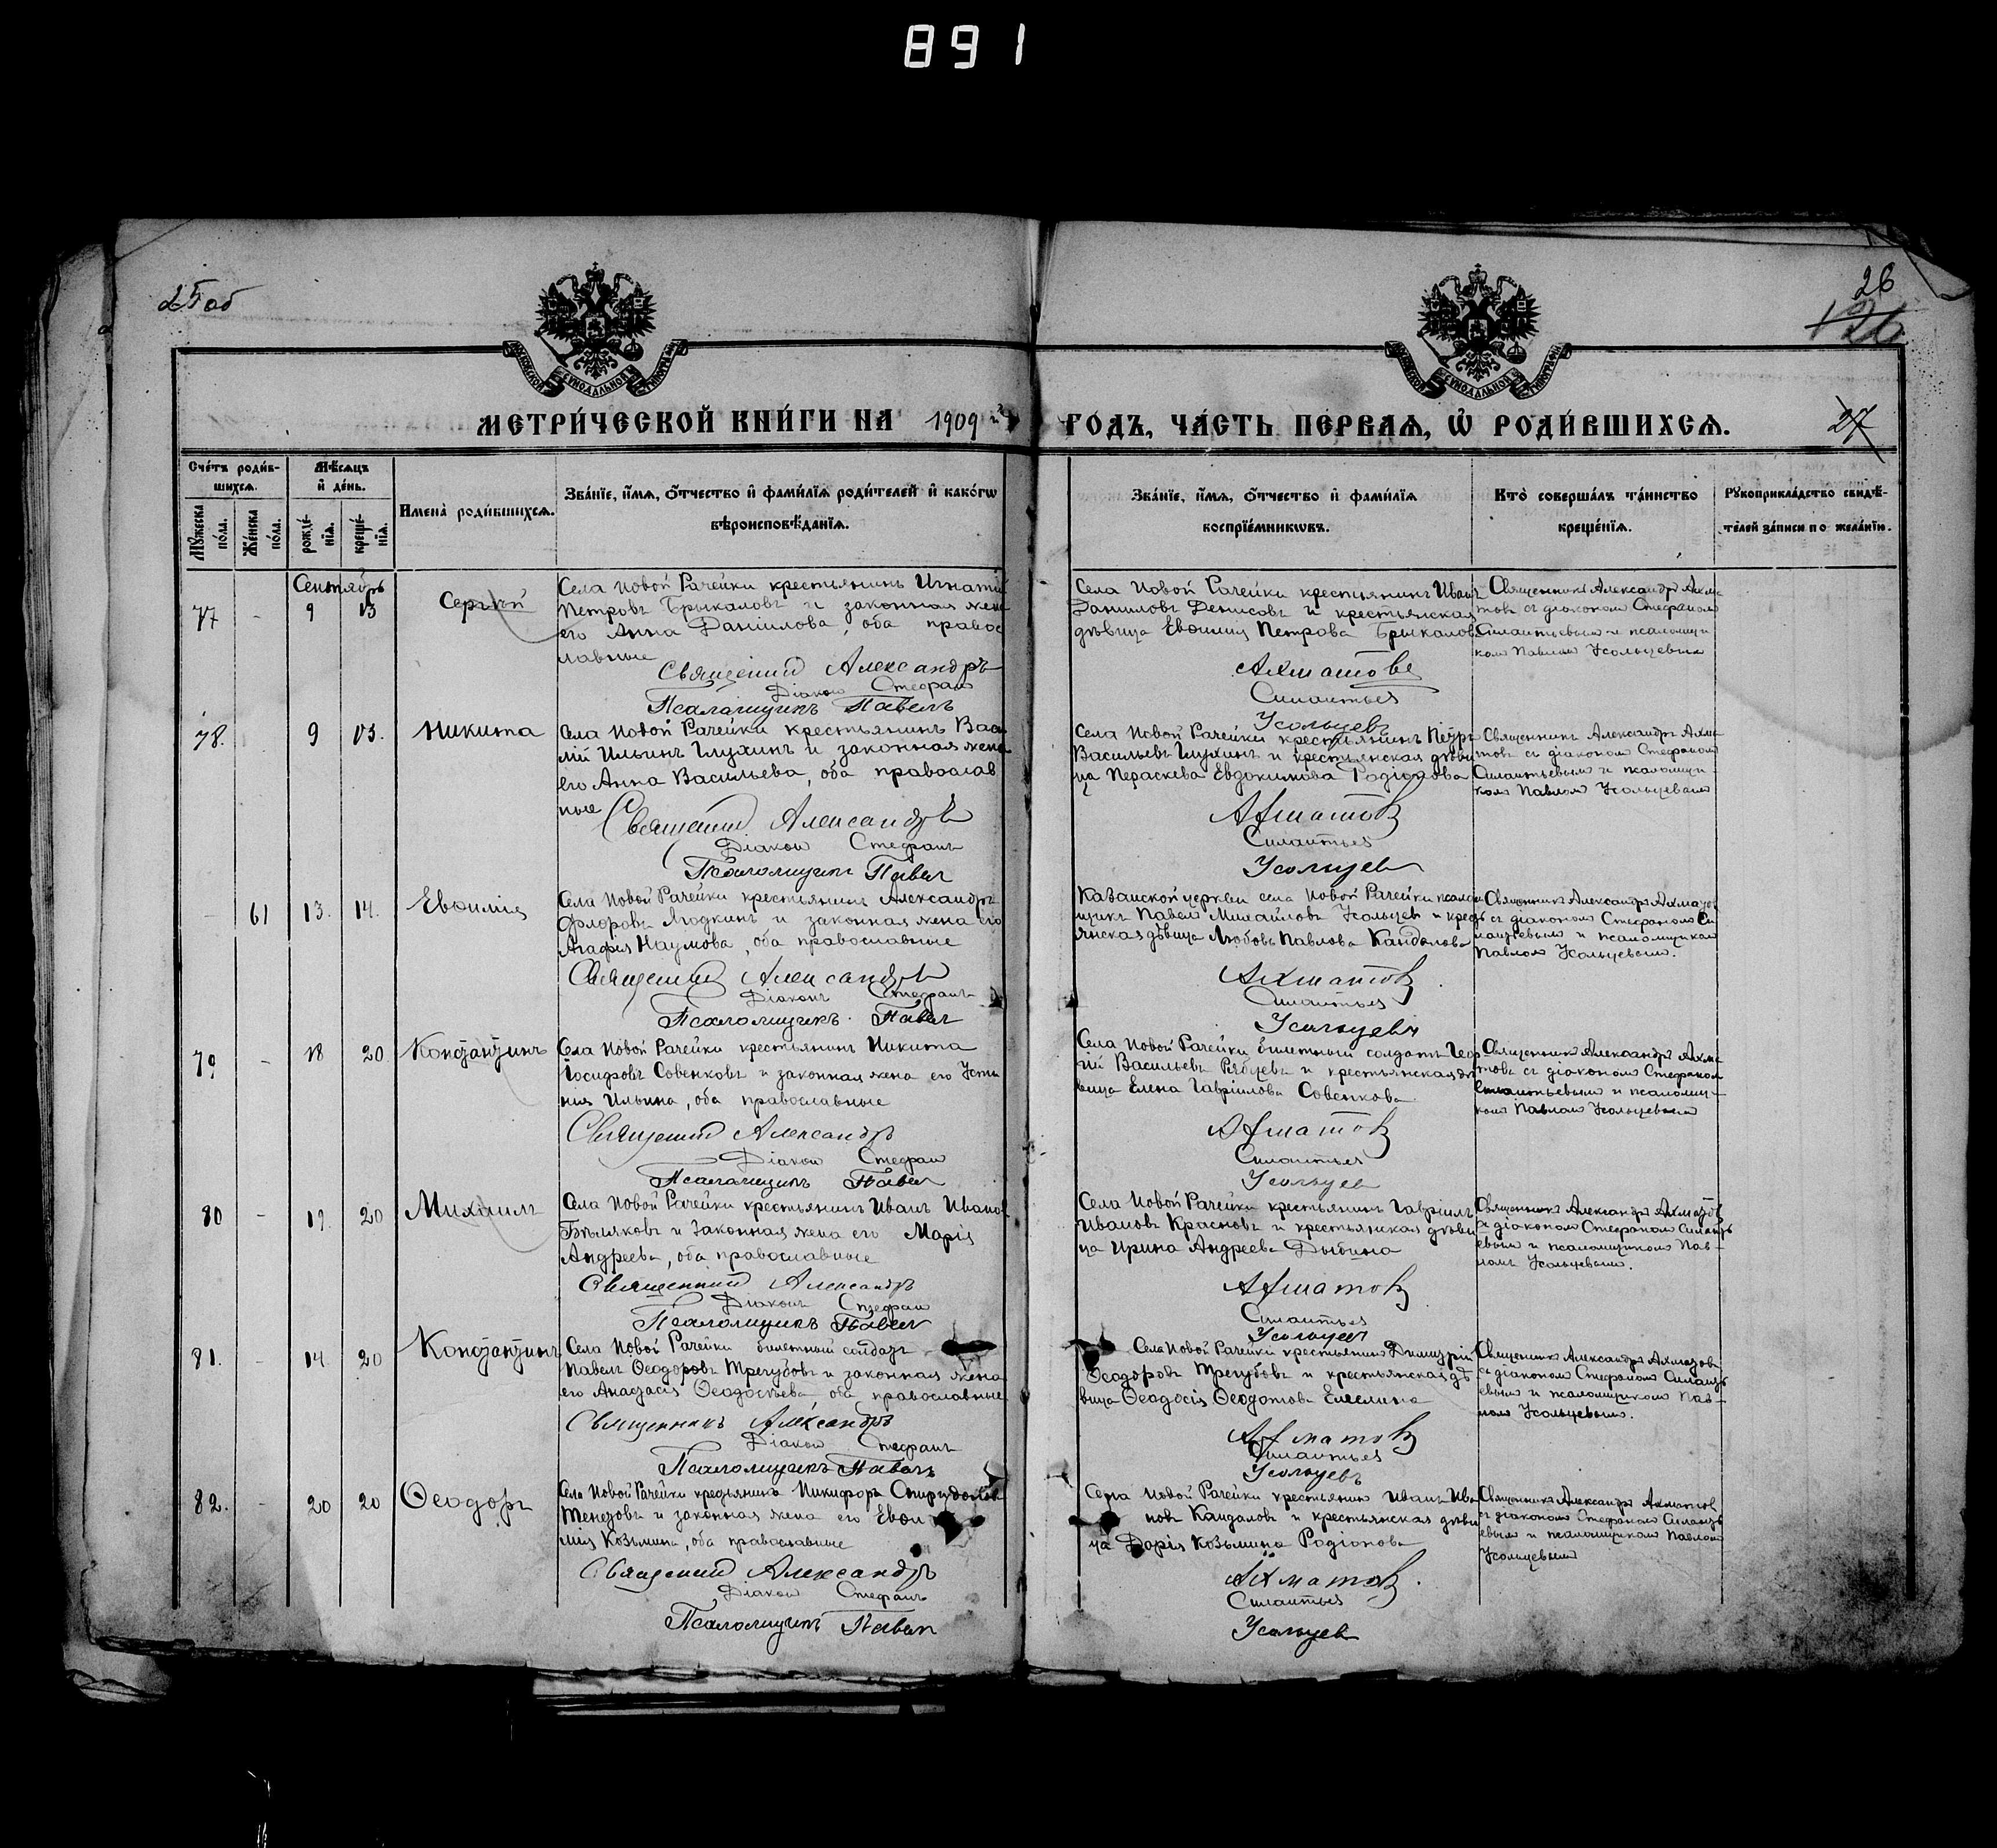 891
25 об
26
126
МЕТРИ́ЧЕСКОЙ КНИ́ГИ НА 1909 й ГОДЪ, ЧА́СТЬ ПЕ́РВАЯ, Ѽ РОДИ́ВШИХСЯ.
27
Сче́тъ роди́в-
шихся.
Мѣ́сяцъ
и҆ де́нь.
Му́жеска по́ла.
Же́нска по́ла.
рожде́-
нїя.
креще́-
нїя.
И҆мена̀ роди́вшихся.
Зва́нїе, и҆́мя, ѻ҆́тчество и҆ фами́лїя роди́телей и҆ како́гѡ
вѣроисповѣ́данїя.
Зва́нїе, и҆́мя, ѻ҆́тчество и҆ фами́лїя
воспрїе́мникѡвъ.
Кто̀ соверша́лъ та́инство
креще́нїя.
Рꙋкоприкла́дство свидѣ́-
телей за́писи по жела́нїю.
Сентябрь
77 - 9 13 Сергѣй
Села Новой Рачейки крестьянинъ Игнатій
Петровъ Брыкаловъ и законная жена
его Анна Даніилова, оба правос
лавные
Священникъ Александръ
Діаконъ Стефанъ
Псаломщикъ Павелъ
Села Новой Рачейки крестьянинъ Иванъ
Даниловъ Денисовъ и крестьянская
дѣвица Евѳимія Петрова Брыкалова
Ахматовъ
Силантьев
Усольцевъ
Священникъ Александръ Ахма-
товъ съ діакономъ Стефаномъ
Силантьевымъ и псаломщи
комъ Павломъ Усольцевымъ
78. 9 13. Никита
Села Новой Рачейки крестьянинъ Васи
лій Ильинъ Глухинъ и законная жена
его Анна Васильева, оба православ
ные
Священник Александръ
Діаконъ Стефанъ
Псаломщикъ Павел
Села Новой Рачейки крестьянинъ Петръ
Васильевъ Глухинъ и крестьянская дѣви
ца Параскева Евдокимова Родіонова
Ахматов
Силантьев
Усольцев
Священникъ Александръ Ахма-
товъ съ діакономъ Стефаномъ
Силантьевымъ и псаломщи-
комъ Павломъ Усольцевымъ
- 61 13. 14. Евѳимія
Села Новой Рачейки крестьянинъ Александръ
Флоровъ Лодкинъ и законная жена его
Агафія Наумова, оба православные
Священник Александръ
Діаконъ Стефанъ
Псаломщикъ Павел
Казанской церкви села Новой Рачейки псалом
щикъ Павелъ Михайловъ Усольцев и кресть
янская дѣвица Любовь Павлова Кандалова
Ахматов
Силантьев
Усольцевъ
Священникъ Александръ Ахматовъ
съ діакономъ Стефаномъ Си
лантьевымъ и псаломщикомъ
Павломъ Усольцевымъ.
79. - 18 20. Константинъ
Села Новой Рачейки крестьянинъ Никита
Іосифовъ Совенковъ и законная жена его Усти
нія Ильина, оба православные
Священник Александръ
Діаконъ Стефан
Псаломщикъ Павел
Села Новой Рачейки билетный солдатъ Геор
гій Васильевъ Рябцевъ и крестьянская дѣ
вица Елена Гавріилова Совенкова.
Ахматов
Силантьев
Усольцев
Священникъ Александръ Ахма-
товъ съ діакономъ Стефаномъ
Силантьевымъ и псаломщи-
комъ Павломъ Усольцевымъ
80 - 19. 20 Михаилъ
Села Новой Рачейки крестьянинъ Иванъ Иванов
Бѣляковъ и законная жена его Марія
Андреева, оба православные
Священник Александръ
Діаконъ Стефан
Псаломщикъ Павел
Села Новой Рачейки крестьянинъ Гавріилъ
Ивановъ Красновъ и крестьянская дѣви
ца Ирина Андреева Дыбина
Ахматов
Силантьев
Усольцевъ
Священникъ Александръ Ахматовъ
съ діакономъ Стефаномъ Силанть
евымъ и псаломщикомъ Пав-
ломъ Усольцевымъ.
81. - 14 20 Константинъ
Села Новой Рачейки билетный солдатъ
Павелъ Ѳеодоровъ Трегубовъ и законная жена
его Анастасія Ѳеодосѣева оба православные
Священникъ Александръ
Діаконъ Стефанъ
Псаломщикъ Павелъ
Села Новой Рачейки крестьянинъ Димитрій
Ѳеодоровъ Трегубовъ и крестьянская дѣ
вица Ѳеодосія Ѳедотова Емелина
Ахматов
Силантьев
Усольцевъ
Священникъ Александръ Ахматовъ
съ діакономъ Стефаномъ Силанть
евымъ и псаломщикомъ Пав-
ломъ Усольцевымъ.
82. - 20 20 Ѳеодоръ
Села Новой Рачейки крестьянинъ Никифоръ Спиридонов
и законная жена его Евѳи
мія Козьмина, оба православные
Священник Александръ
Діаконъ Стефанъ
Псаломщикъ Павел
Села Новой Рачейки крестьянинъ Иванъ Ива
новъ Кандаловъ и крестьянская дѣви
ца Дарія Козьмина Родіонова
Ахматов.
Силантьев
Усольцев
Священникъ Александръ Ахматов
съ діакономъ Стефаномъ Силанть
евымъ и псаломщикомъ Павломъ
Усольцевымъ